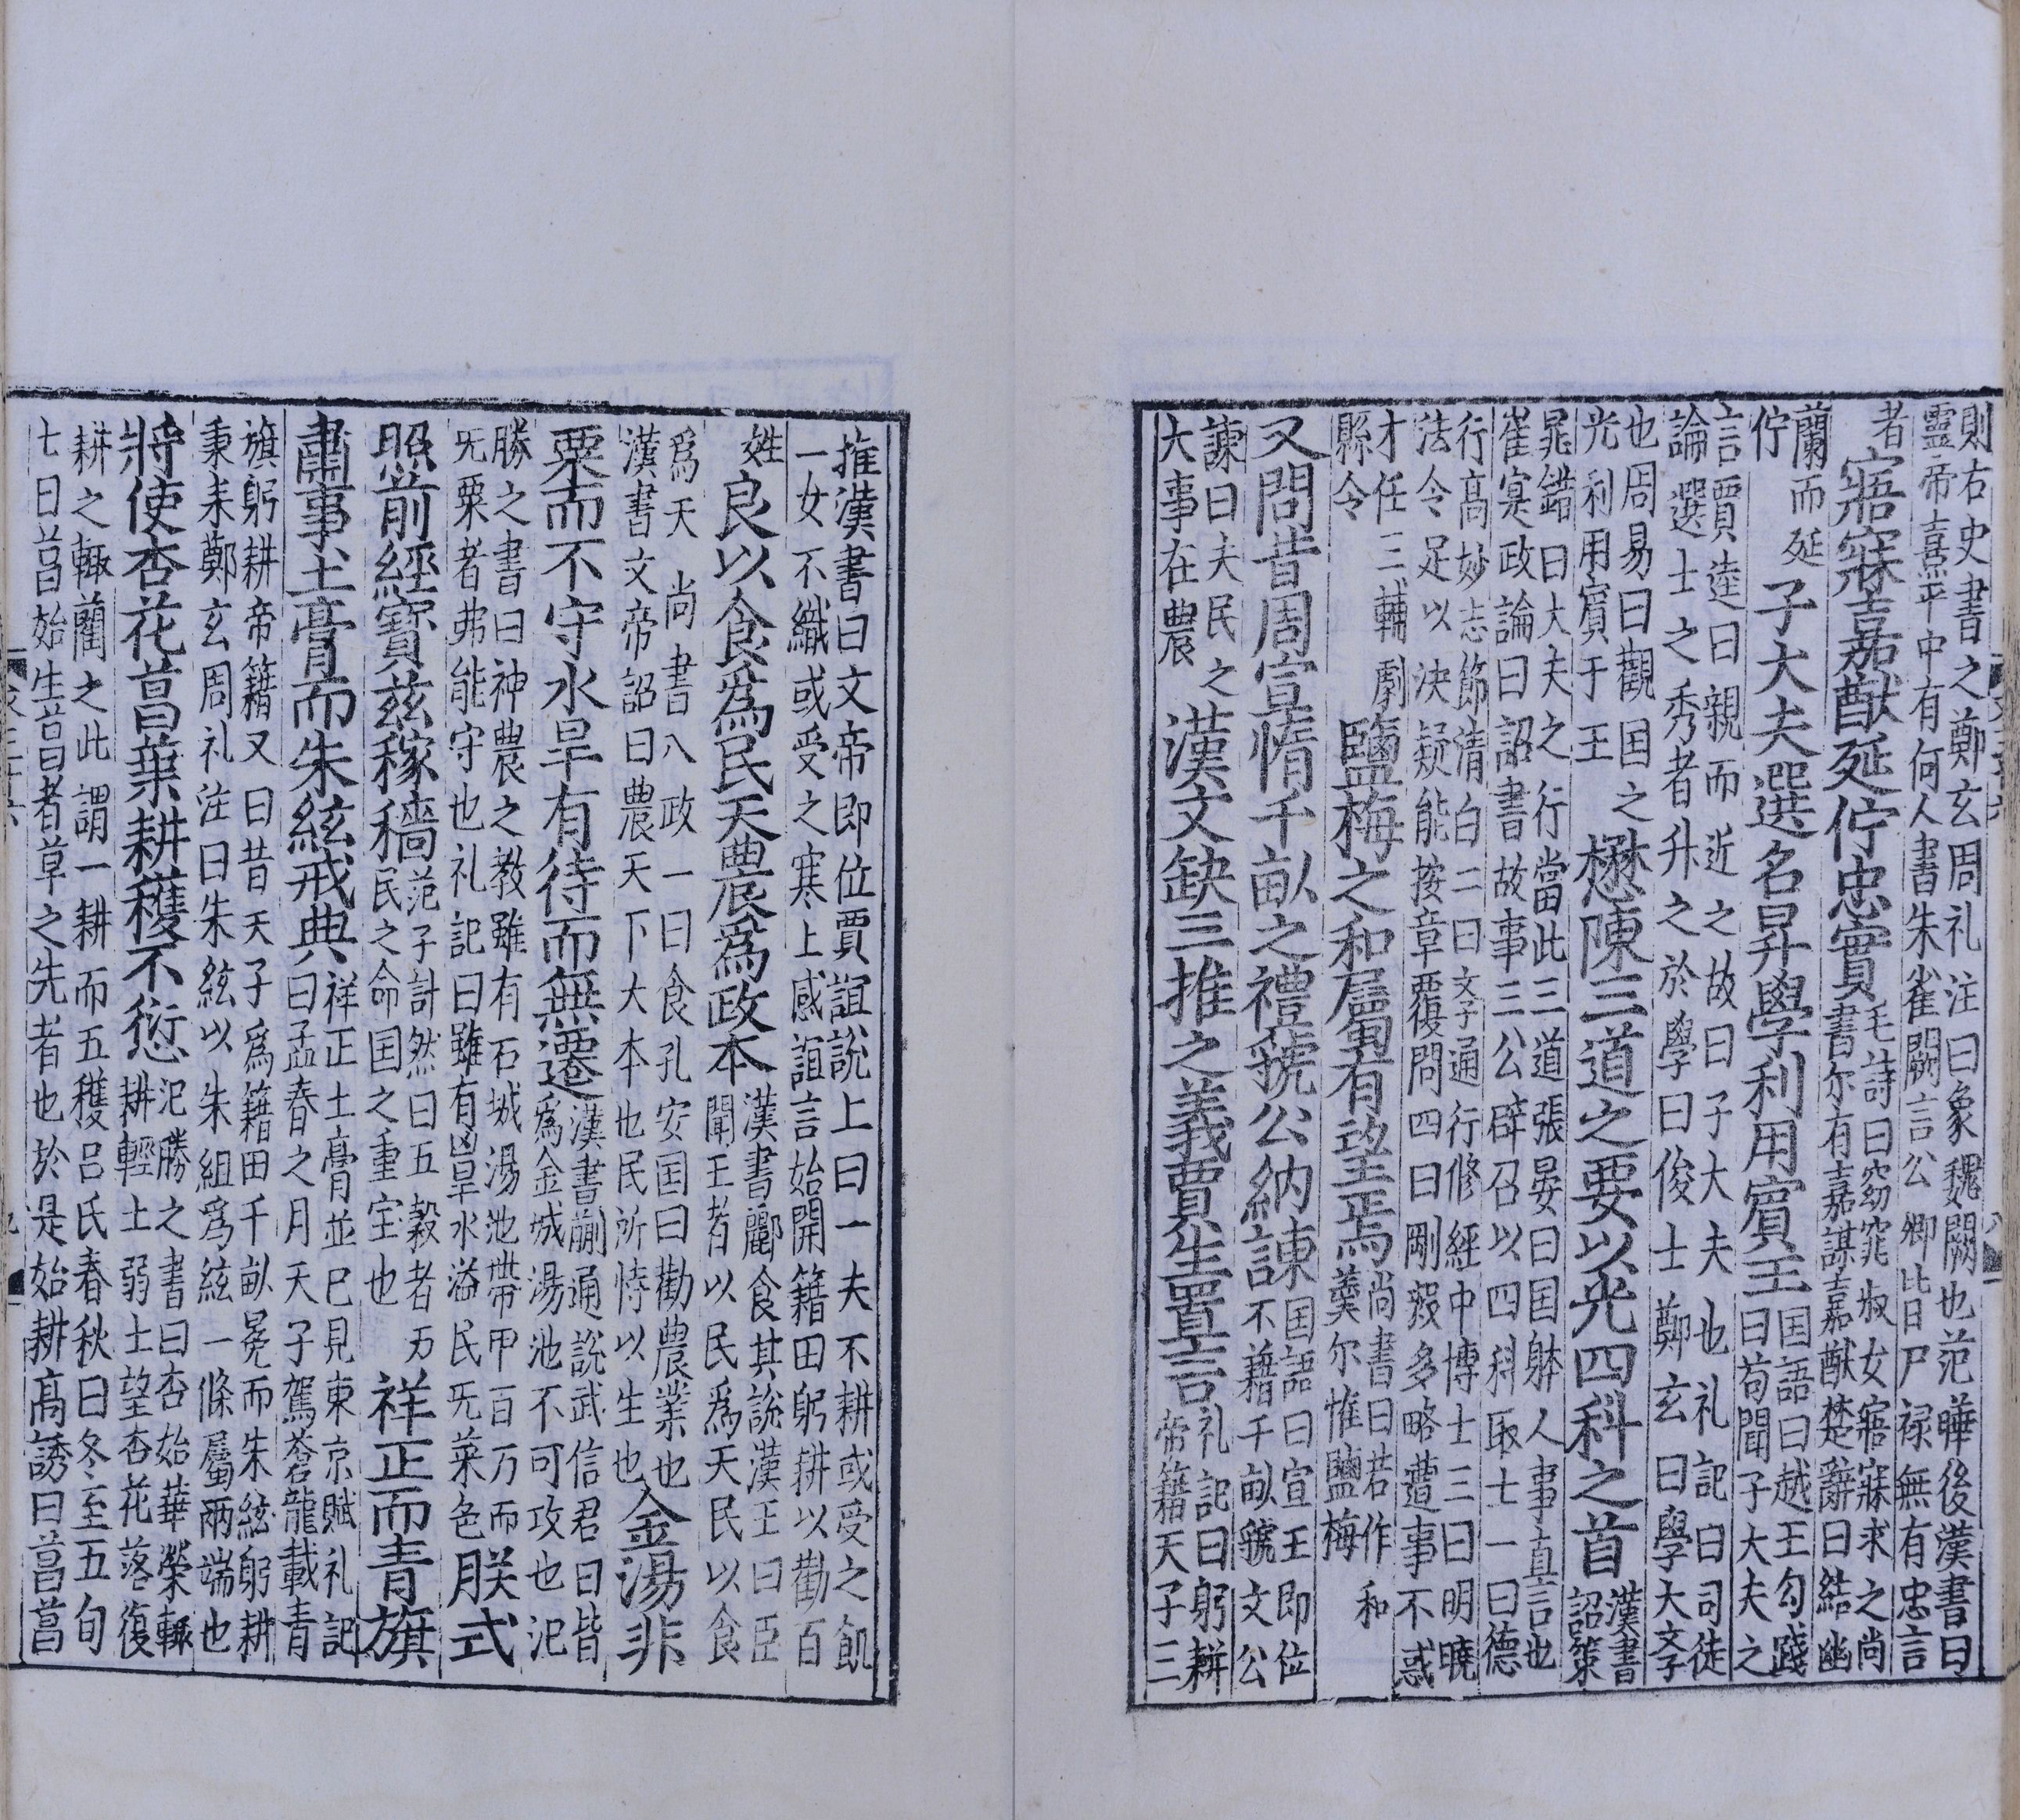 則右史書之鄭玄周礼注曰象魏闕也范曄後漢書曰
靈帝熹平中有何人書朱雀闕言公卿比日尸禄無有忠言
者寤寐嘉猷延佇忠實毛詩曰窈窕淑女寤寐求之尚
書尓有嘉謀嘉猷楚辭曰結幽
蘭而延
佇子大夫選名昇學利用賓王国語曰越王勾踐
曰苟聞子大夫之
言賈逵曰親而近之故曰子大夫也礼記曰司徒
論選士之秀者升之於學曰俊士鄭玄曰學大文子
也周易曰觀国之
光利用賓于王懋陳三道之要以光四科之首漢書
詔策
晁錯曰大夫之行當此三道張晏曰国躰人事直言也
崔寔政論曰詔書故事三公辟召以四科取士一曰德
行高妙志節清白二曰文子通行修經中博士三曰明曉
法令足以決疑能按章覆問四曰剛毅多略遭事不惑
才任三輔劇
縣令鹽梅之和屬有望焉尚書曰若作和
羹尓惟鹽梅
又問昔周宣惰千畝之禮虢公納諌国語曰宣王即位
不藉千畝虢文公
諌曰夫民之
大事在農漢文缺三推之義賈生置言礼記曰躬耕
帝籍天子三
推漢書曰文帝即位賈誼說上曰一夫不耕或受之飢
一女不織或受之寒上感誼言始開籍田躬耕以勸百
姓良以食為民天農為政本漢書酈食其說漢王曰臣
聞王者以民為天民以食
為天尚書八政一曰食孔安国曰勸農業也
漢書文帝詔曰農天下大本也民所恃以生也金湯非
粟而不守水旱有待而無遷漢書蒯通說武信君曰皆
為金城湯池不可攻也氾
勝之書曰神農之教雖有石城湯池帶甲百万而
旡粟者弗能守也礼記曰雖有凶旱水溢民旡菜色朕式
照前經寶茲稼穡范子計然曰五穀者万
民之命国之重宝也祥正而青旗
肅事土膏而朱絃戒典祥正土膏並已見東京賦礼記
曰孟春之月天子駕蒼龍載青
旗躬耕帝籍又曰昔天子為籍田千畝冕而朱絃躬耕
秉耒鄭玄周礼注曰朱絃以朱組為絃一條屬兩端也
將使杏花菖葉耕穫不愆氾勝之書曰杏始華榮輙
耕輕土弱土望杏花落復
耕之輙藺之此謂一耕而五穫呂氏春秋曰冬至五旬
七日菖始生菖者草之先者也於是始耕高誘曰菖菖